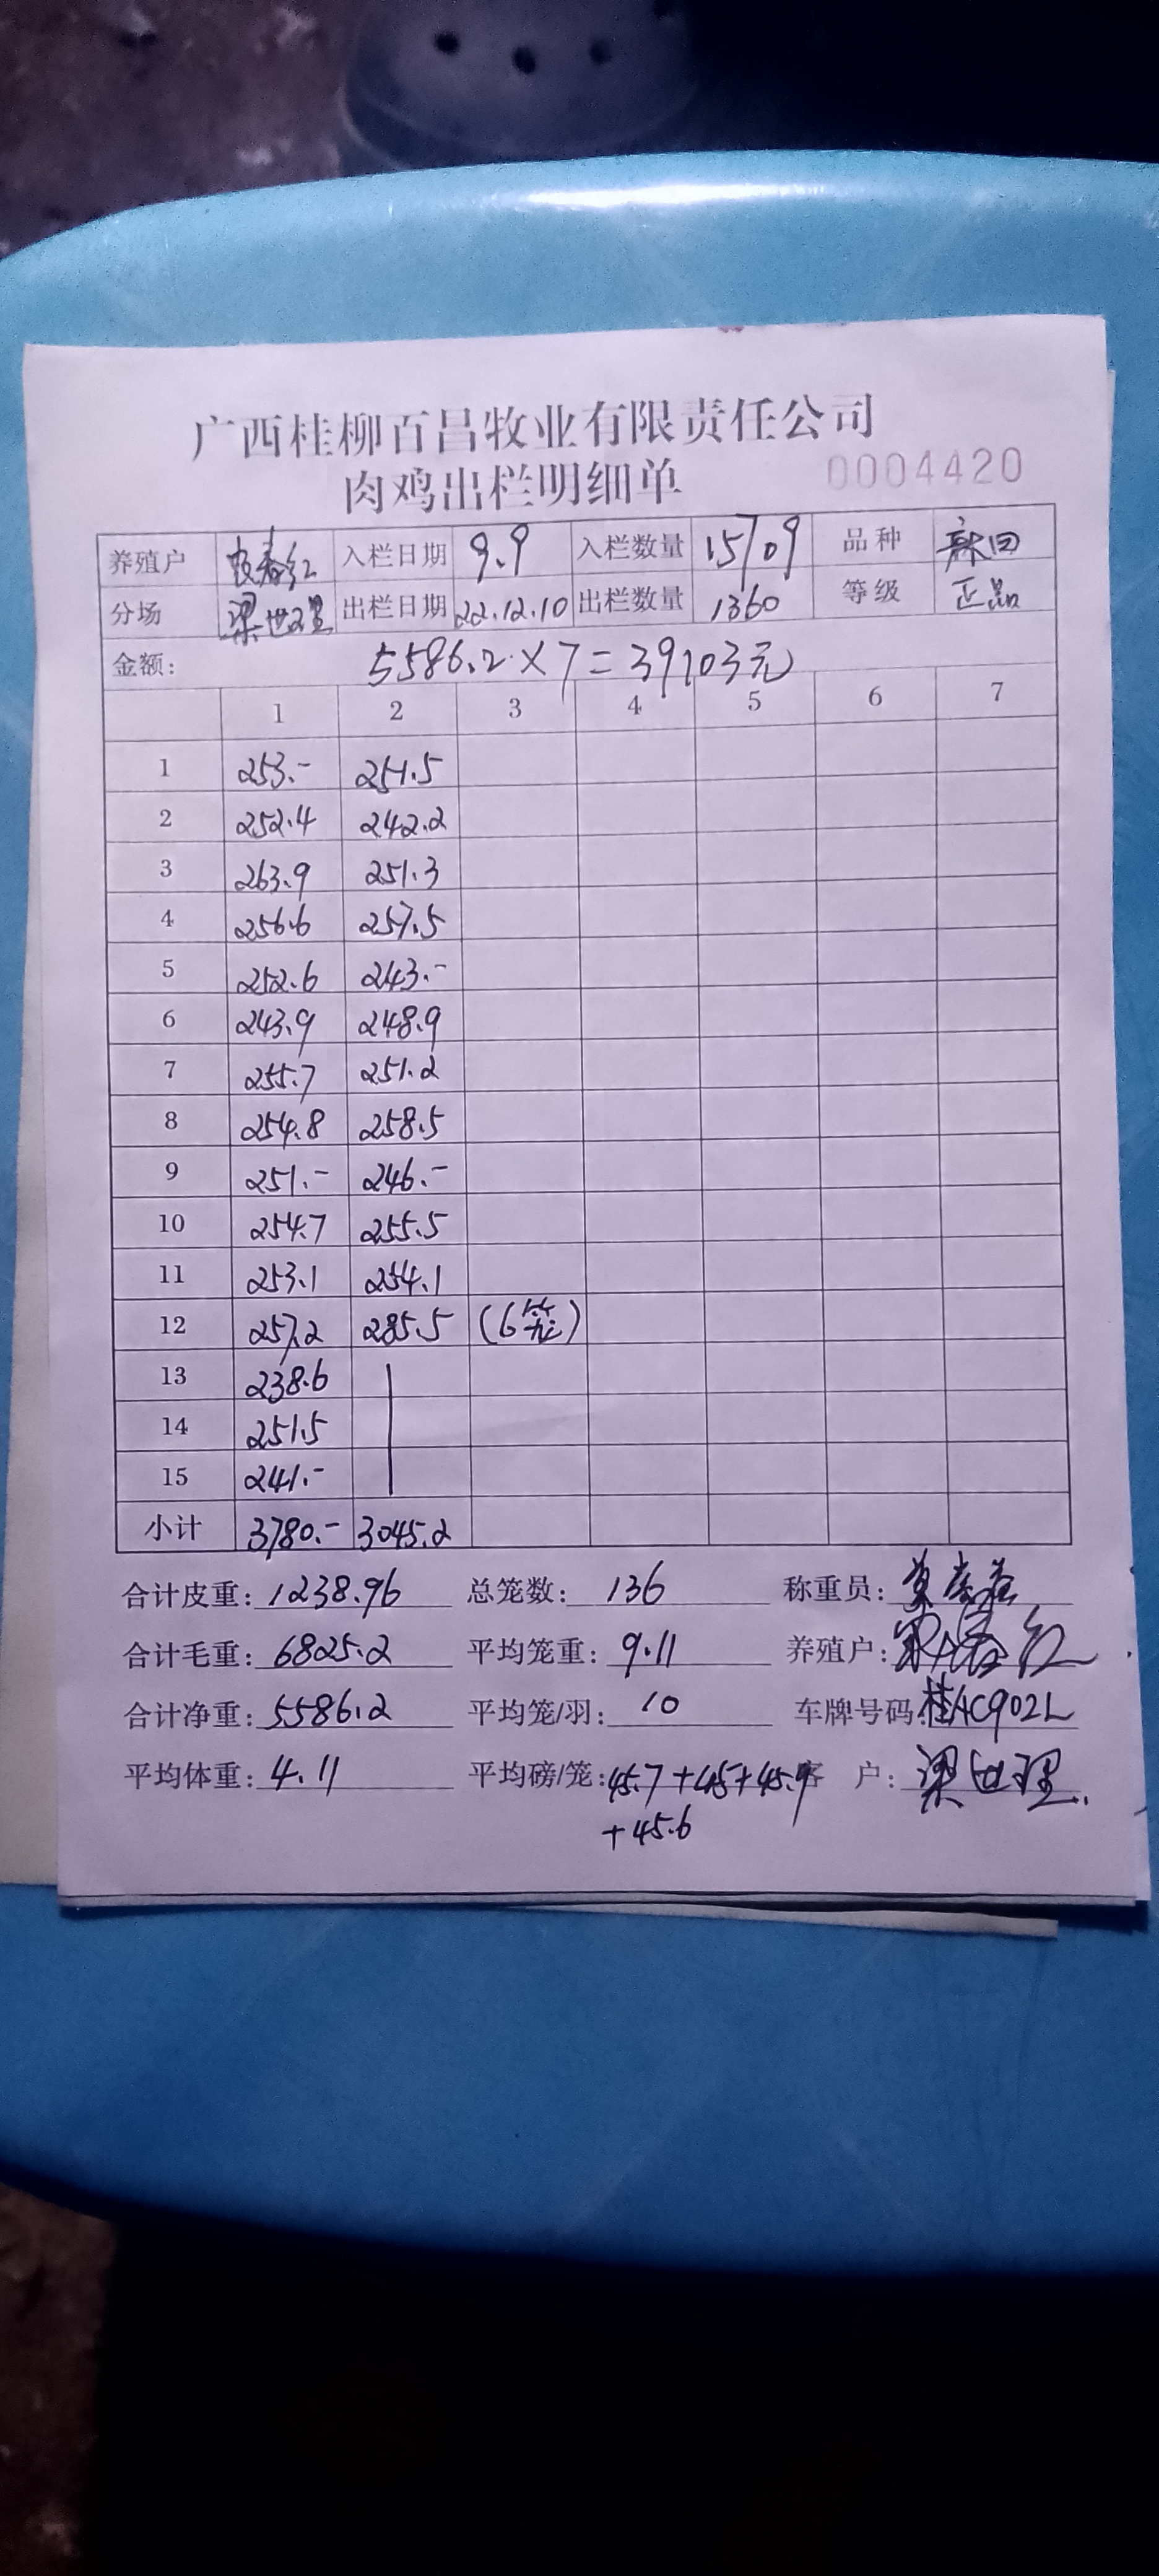 广西桂柳百昌牧业有限责任公司
肉鸡出栏明细单 0004420
养殖户 春红 入栏日期 9.9 入栏数量 15709 品种
分场 梁世理 出栏日期 22.12.10 出栏数量 1360 等级 正品
金额: 5586.2×7=39103元
1 2 3 4 5 6 7
1 253.- 251.5
2 252.4 242.2
3 263.9 251.3
4 256.6 257.5
5 252.6 243.-
6 243.9 248.9
7 255.7 251.2
8 254.8 258.5
9 251.- 246.-
10 254.7 255.5
11 253.1 254.1
12 257.2 285.5 (6笼)
13 238.6
14 251.5
15 241.-
小计 3780.- 3045.2
合计皮重: 1238.96 总笼数: 136 称重员:
合计毛重: 6825.2 平均笼重: 9.11 养殖户: 春红
合计净重: 5586.2 平均笼/羽: 10 车牌号码: 桂AC902L
平均体重: 4.11 平均磅/笼: 45.7+45+45.9 客户: 梁世理
+45.6